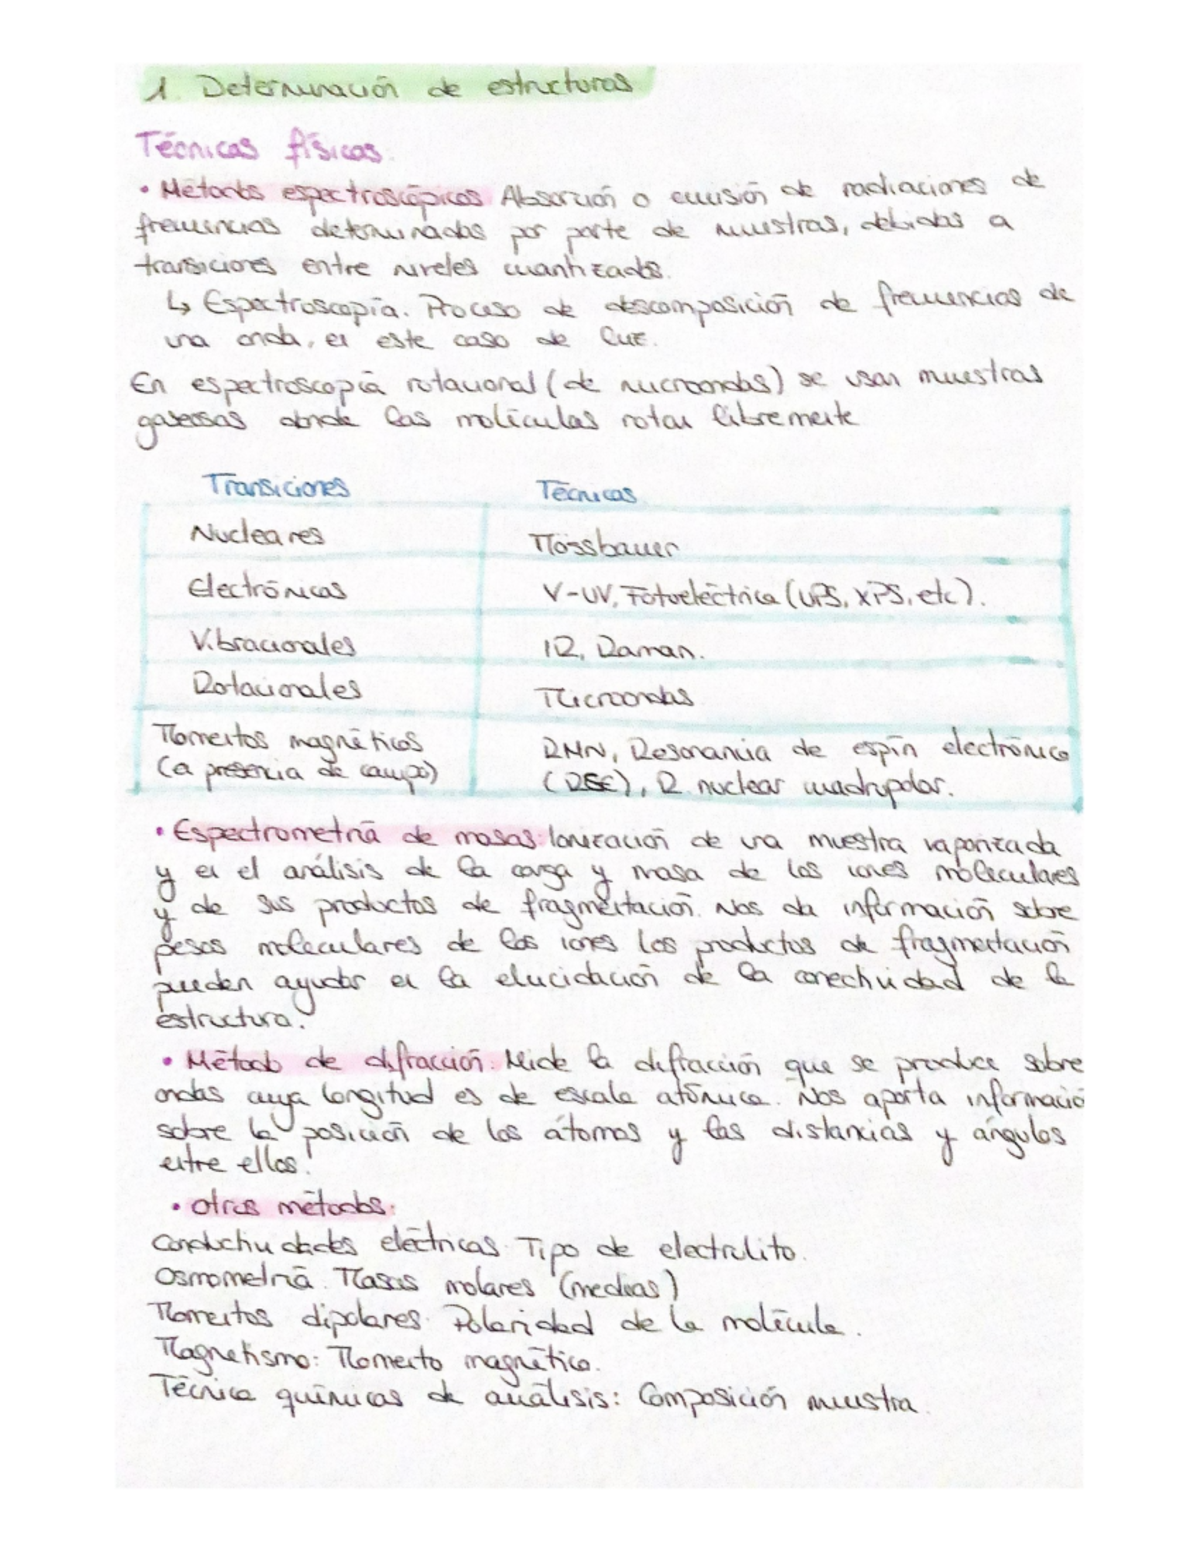 1. Determinación de estructuras
Técnicas físicas.
• Métodos espectroscópicos Absorción o emisión de radiaciones de
frecuencias determinadas por parte de muestras, debidas a
transiciones entre niveles cuantizados.
↳ Espectroscopía. Proceso de descomposición de frecuencias de
una onda, en este caso de luz.
En espectroscopía rotacional (de microondas) se usan muestras
gaseosas donde las moléculas rotan libremente
Transiciones Técnicas
Nucleares Mössbauer
Electrónicas V-UV, Fotoeléctrica (UPS, XPS, etc).
Vibracionales IR, Raman.
Rotacionales Microondas
Momentos magnéticos RMN, Resonancia de espín electrónico
(a presencia de campo) (RSE), R. nuclear cuadrupolar.
• Espectrometría de masas: Ionización de una muestra vaporizada
y en el análisis de la carga y masa de los iones moleculares
y de sus productos de fragmentación. Nos da información sobre
pesos moleculares de los iones los productos de fragmentación
pueden ayudar en la elucidación de la conectividad de la
estructura.
• Método de difracción: Mide la difracción que se produce sobre
ondas cuya longitud es de escala atómica. Nos aporta informació
sobre la posición de los átomos y las distancias y ángulos
entre ellos.
• Otros métodos:
Conductividades eléctricas: Tipo de electrolito.
Osmometría. Masas molares (medias)
Momentos dipolares: Polaridad de la molécula.
Magnetismo: Momento magnético.
Técnica químicas de análisis: Composición muestra.